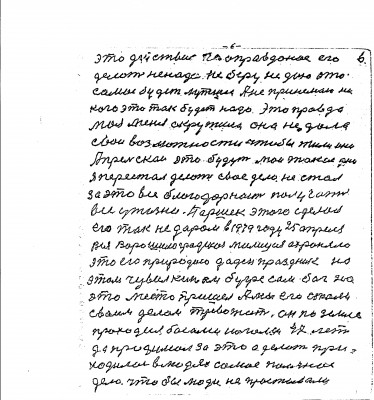 -6-
6.
это действие не оправданое его
делать ненадо. не беру не даю это
самое будет лутшея А не принемаю не
кого это так будет надо. Это правда
моя меня окружила она не дала
свои возможности чтобы жили они
Апрельской это будут мои такие дни
я перестал делать свое дело, не стал
за это все благодарность получать
все утихно. Паршек этого сделал
его так не даром в 1979 году 25 апреля
вся Ворошиловградская милиция охроняло
это его природно дадын праздник на
этом чувилкином бугре сам бог на
это место пришел А мы его стали
своим делом тревожит, он по земле
проходил босыми ногами 47 лет
да продумал за это а делать при-
ходилось в людях самое полезное
дело. что бы люди не простывали